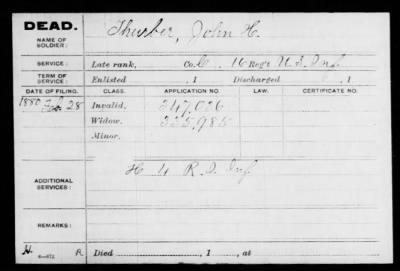 DEAD.
NAME OF
SOLDIER:
Thurber, John H.
SERVICE:
Late rank, Co. C, 16 Reg't U.S. Inf.
TERM OF
SERVICE:
Enlisted , 1 Discharged , 1
DATE OF FILING. CLASS. APPLICATION NO. LAW. CERTIFICATE NO.
1880 Feb 28 Invalid, 347,026
Widow, 335,985
Minor,
ADDITIONAL
SERVICES:
H 4 R.I. Inf
REMARKS:
Died , 1 , at